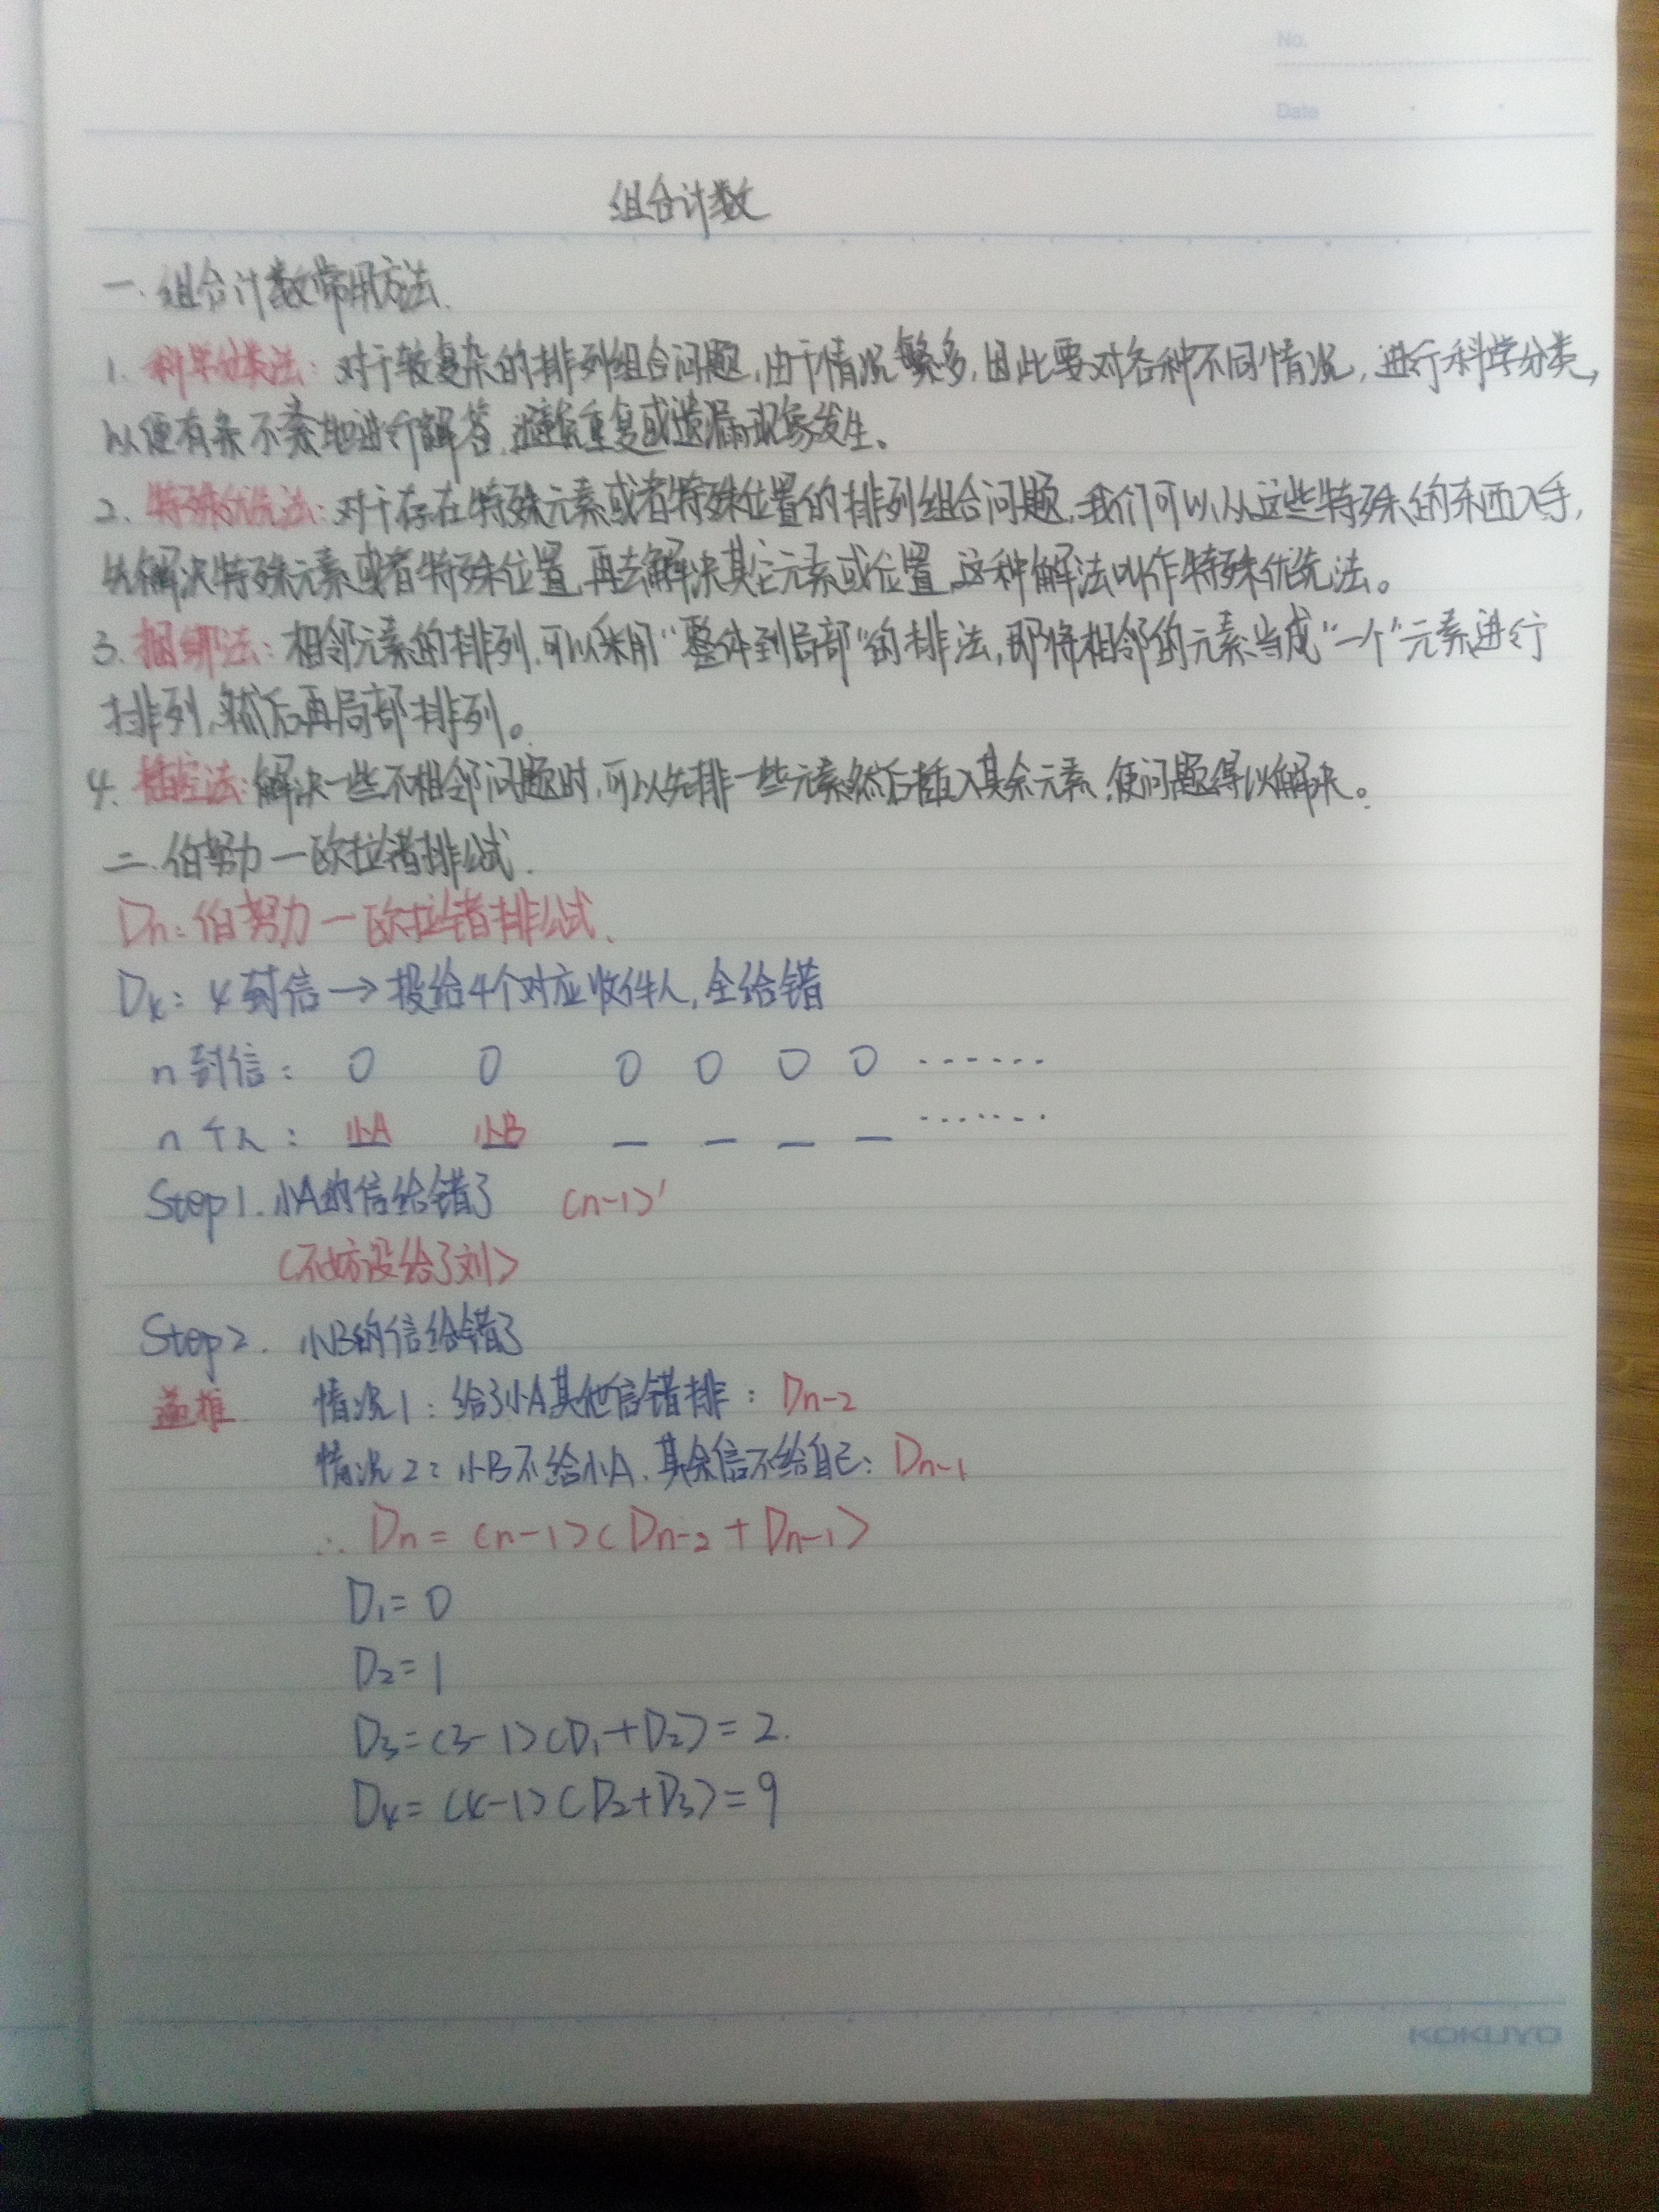 No.
Date
组合计数
一.组合计数常用方法.
1. 科学分类法: 对于较复杂的排列组合问题,由于情况繁多,因此要对各种不同情况,进行科学分类,
以便有条不紊地进行解答,避免重复或遗漏现象发生。
2. 特殊优先法: 对于存在特殊元素或者特殊位置的排列组合问题,我们可以从这些特殊的东西入手,
先解决特殊元素或者特殊位置,再去解决其它元素或位置,这种解法叫作特殊优先法。
3. 捆绑法: 相邻元素的排列,可以采用“整体到局部”的排法,即将相邻的元素当成“一个”元素进行
排列,然后再局部排列。
4. 插空法: 解决一些不相邻问题时,可以先排一些元素然后插入其余元素,使问题得以解决。
二.伯努力一欧拉错排公式.
Dn: 伯努力一欧拉错排公式.
D4: 4封信→投给4个对应收件人,全给错
n封信: 0 0 0 0 0 0 ......
n个人: 小A 小B — — — — .......
Step1. 小A的信给错了 (n-1)'
(不妨设给了刘)
Step2. 小B的信给错了
递推 情况1: 给了小A其他信错排: Dn-2
情况2: 小B不给小A,其余信不给自己: Dn-1
∴ Dn=(n-1)(Dn-2+Dn-1)
D1=0
D2=1
D3=(3-1)(D1+D2)=2.
D4=(4-1)(D2+D3)=9
KOKUYO